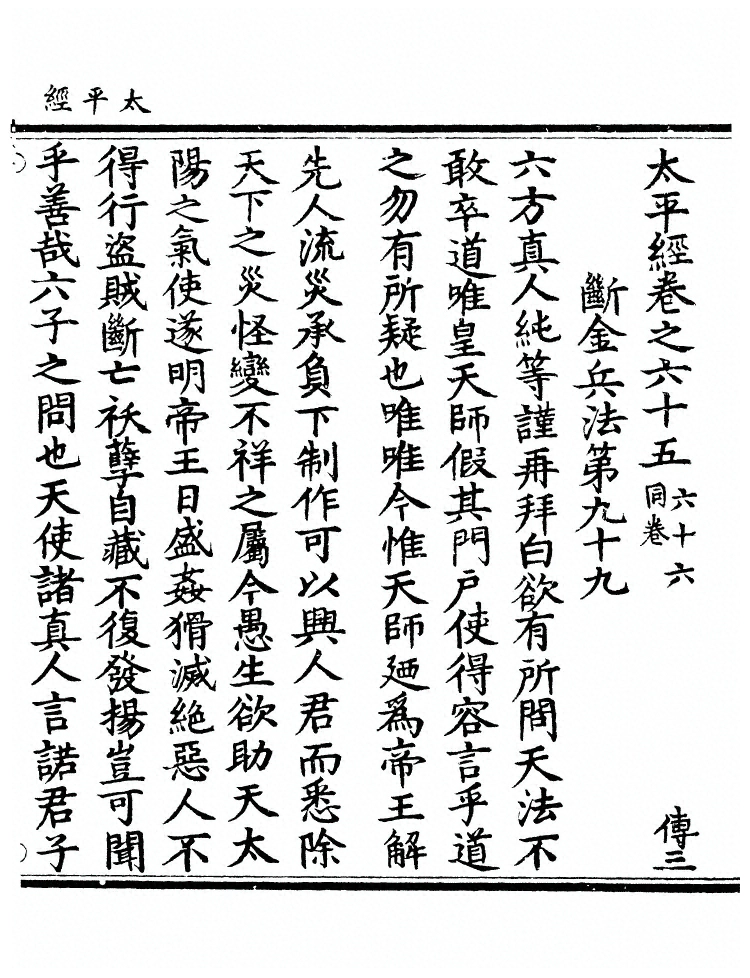 太平經
太平經卷之六十五 六十六同卷 傳三
斷金兵法第九十九
六方真人純等謹再拜白欲有所問天法不
敢卒道唯皇天師假其門戶使得容言乎道
之勿有所疑也唯唯今惟天師廼爲帝王解
先人流災承負下制作可以興人君而悉除
天下之災怪變不祥之屬今愚生欲助天太
陽之氣使遂明帝王日盛姦猾滅絶惡人不
得行盜賊斷亡祅孽自藏不復發揚豈可聞
乎善哉六子之問也天使諸真人言諾君子